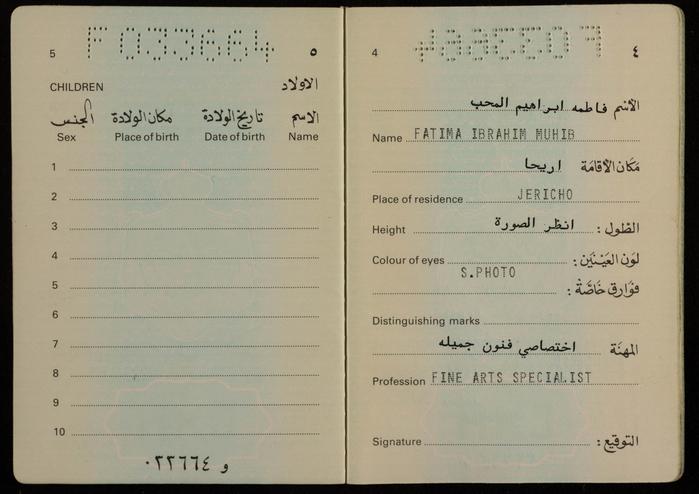 5 F033664 ٥
CHILDREN الاولاد
الجنس مكان الولادة تاريخ الولادة الاسم
Sex Place of birth Date of birth Name
1
2
3
4
5
6
7
8
9
10
و ٠٣٣٦٦٤
4 ٤
الاسم فاطمه ابراهيم المحب
Name FATIMA IBRAHIM MUHIB
مكان الأقامة اريحا
Place of residence JERICHO
الطول : انظر الصورة
Height
لون العينين :
Colour of eyes
S.PHOTO
فوارق خاصة :
Distinguishing marks
المهنة اختصاصي فنون جميله
Profession FINE ARTS SPECIALIST
Signature التوقيع :